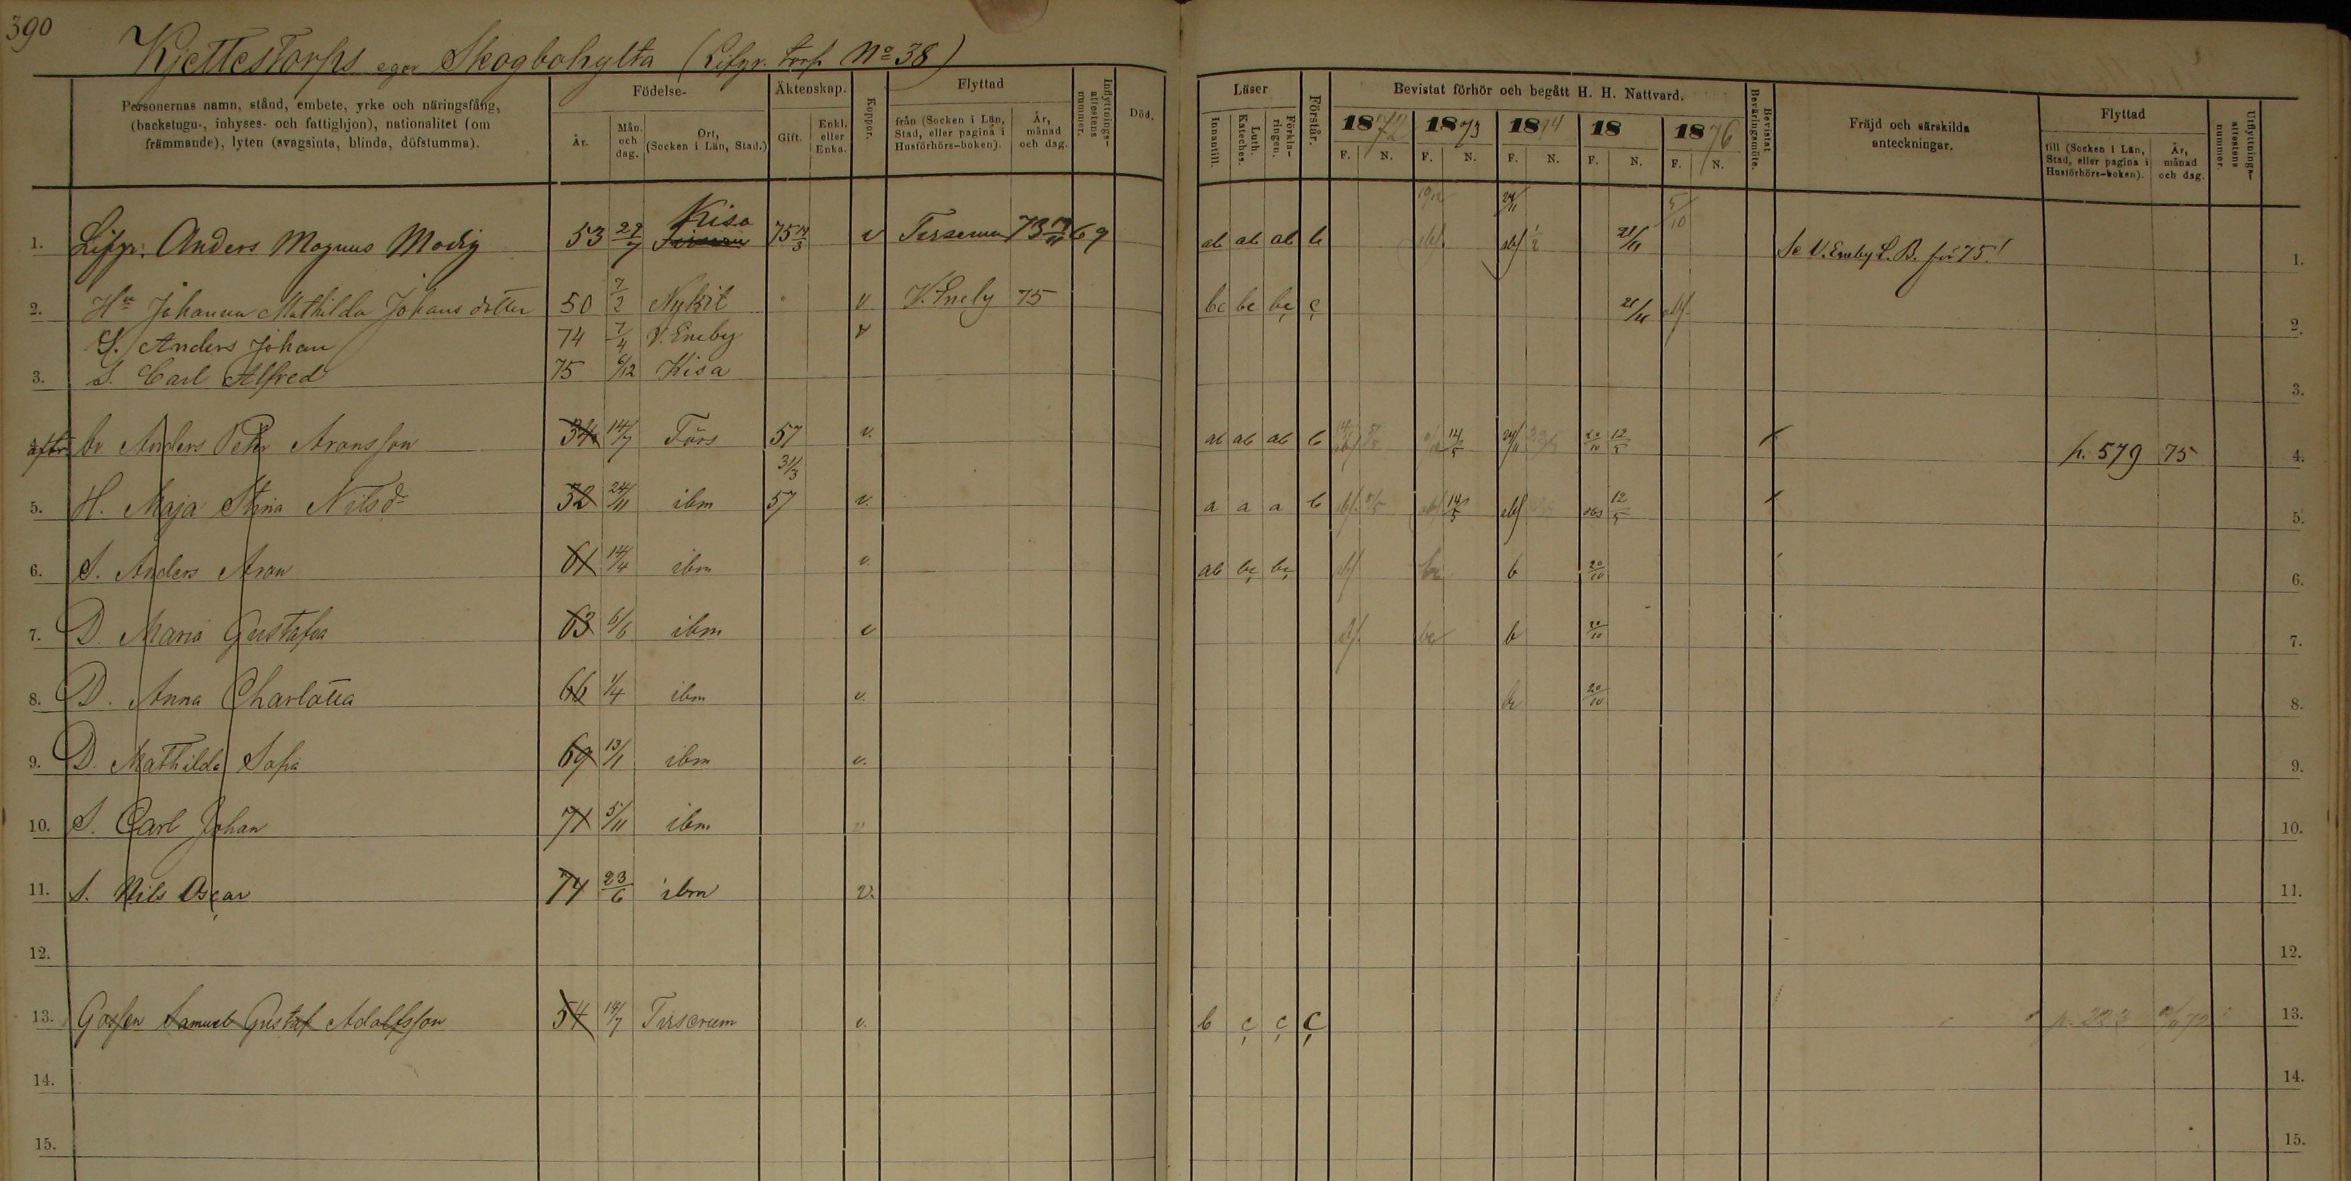 390
Kjettestorps egor Skogbohylta (Lifgr. torp No 38)
Personernas namn, stånd, embete, yrke och näringsfång, (backstugu-, inhyses- och fattighjon), nationalitet (om främmande), lyten (svagsinta, blinda, döfstumma).
Födelse-
År.
Mån. och dag.
Ort, (Socken i Län, Stad.)
Äktenskap.
Gift.
Enkl. eller Enka.
Koppor.
Flyttad
från (Socken i Län, Stad, eller pagina i Husförhörs-boken).
År, månad och dag.
Inflyttnings-attestens nummer.
Död.
Läser
Innantill.
Luth. Kateches.
Förkla-ringen.
Förstår.
Bevistat förhör och begått H. H. Nattvard.
1872 1873 1874 18 1876
F. N. F. N. F. N. F. N. F. N.
Bevistat Beväringsmöte.
Fräjd och särskilda anteckningar.
Flyttad
till (Socken i Län, Stad, eller pagina i Husförhörs-boken).
År, månad och dag.
Utflyttnings-attestens nummer.
1. Lifgr. Anders Magnus Modig 53 27/7 Kisa 75 v 73 69 ab ab ab b 24/11 1/2 21/11 5/10 Se V. Eneby L. B. för 75! 1.
2. Hu Johanna Mathilda Johansdotter 50 7/2 v V. Eneby 75 bc bc bc c 21/11 2.
S. Anders Johan 74 7/4 V. Eneby v
3. S. Carl Alfred 75 6/12 Kisa 3.
br Anders Petr Aronsson 34 14/7 Törs 57 v. ab ab ab b 14/5 24/11 20/10 12/5 p. 579 75 4.
31/3
5. H. Maja Stina Nilsdr 32 24/11 ibm 57 v. a a a b 14/5 12/5 5.
6. S. Anders Aron 61 14/4 ibm v. ab bc bc b 20/10 6.
7. D. Maria Gustafva 63 6/6 ibm v bc b 20/10 7.
8. D. Anna Charlotta 66 1/4 ibm v. bc 20/10 8.
9. D. Mathilda Sofia 69 13/1 ibm v. 9.
10. S. Carl Johan 71 5/11 ibm v 10.
11. S. Nils Oscar 74 23/6 ibm v. 11.
12. 12.
13. Gossen Samuel Gustaf Adolfsson 54 14/7 Tirserum v. b c c c p. 223 13.
14. 14.
15. 15.